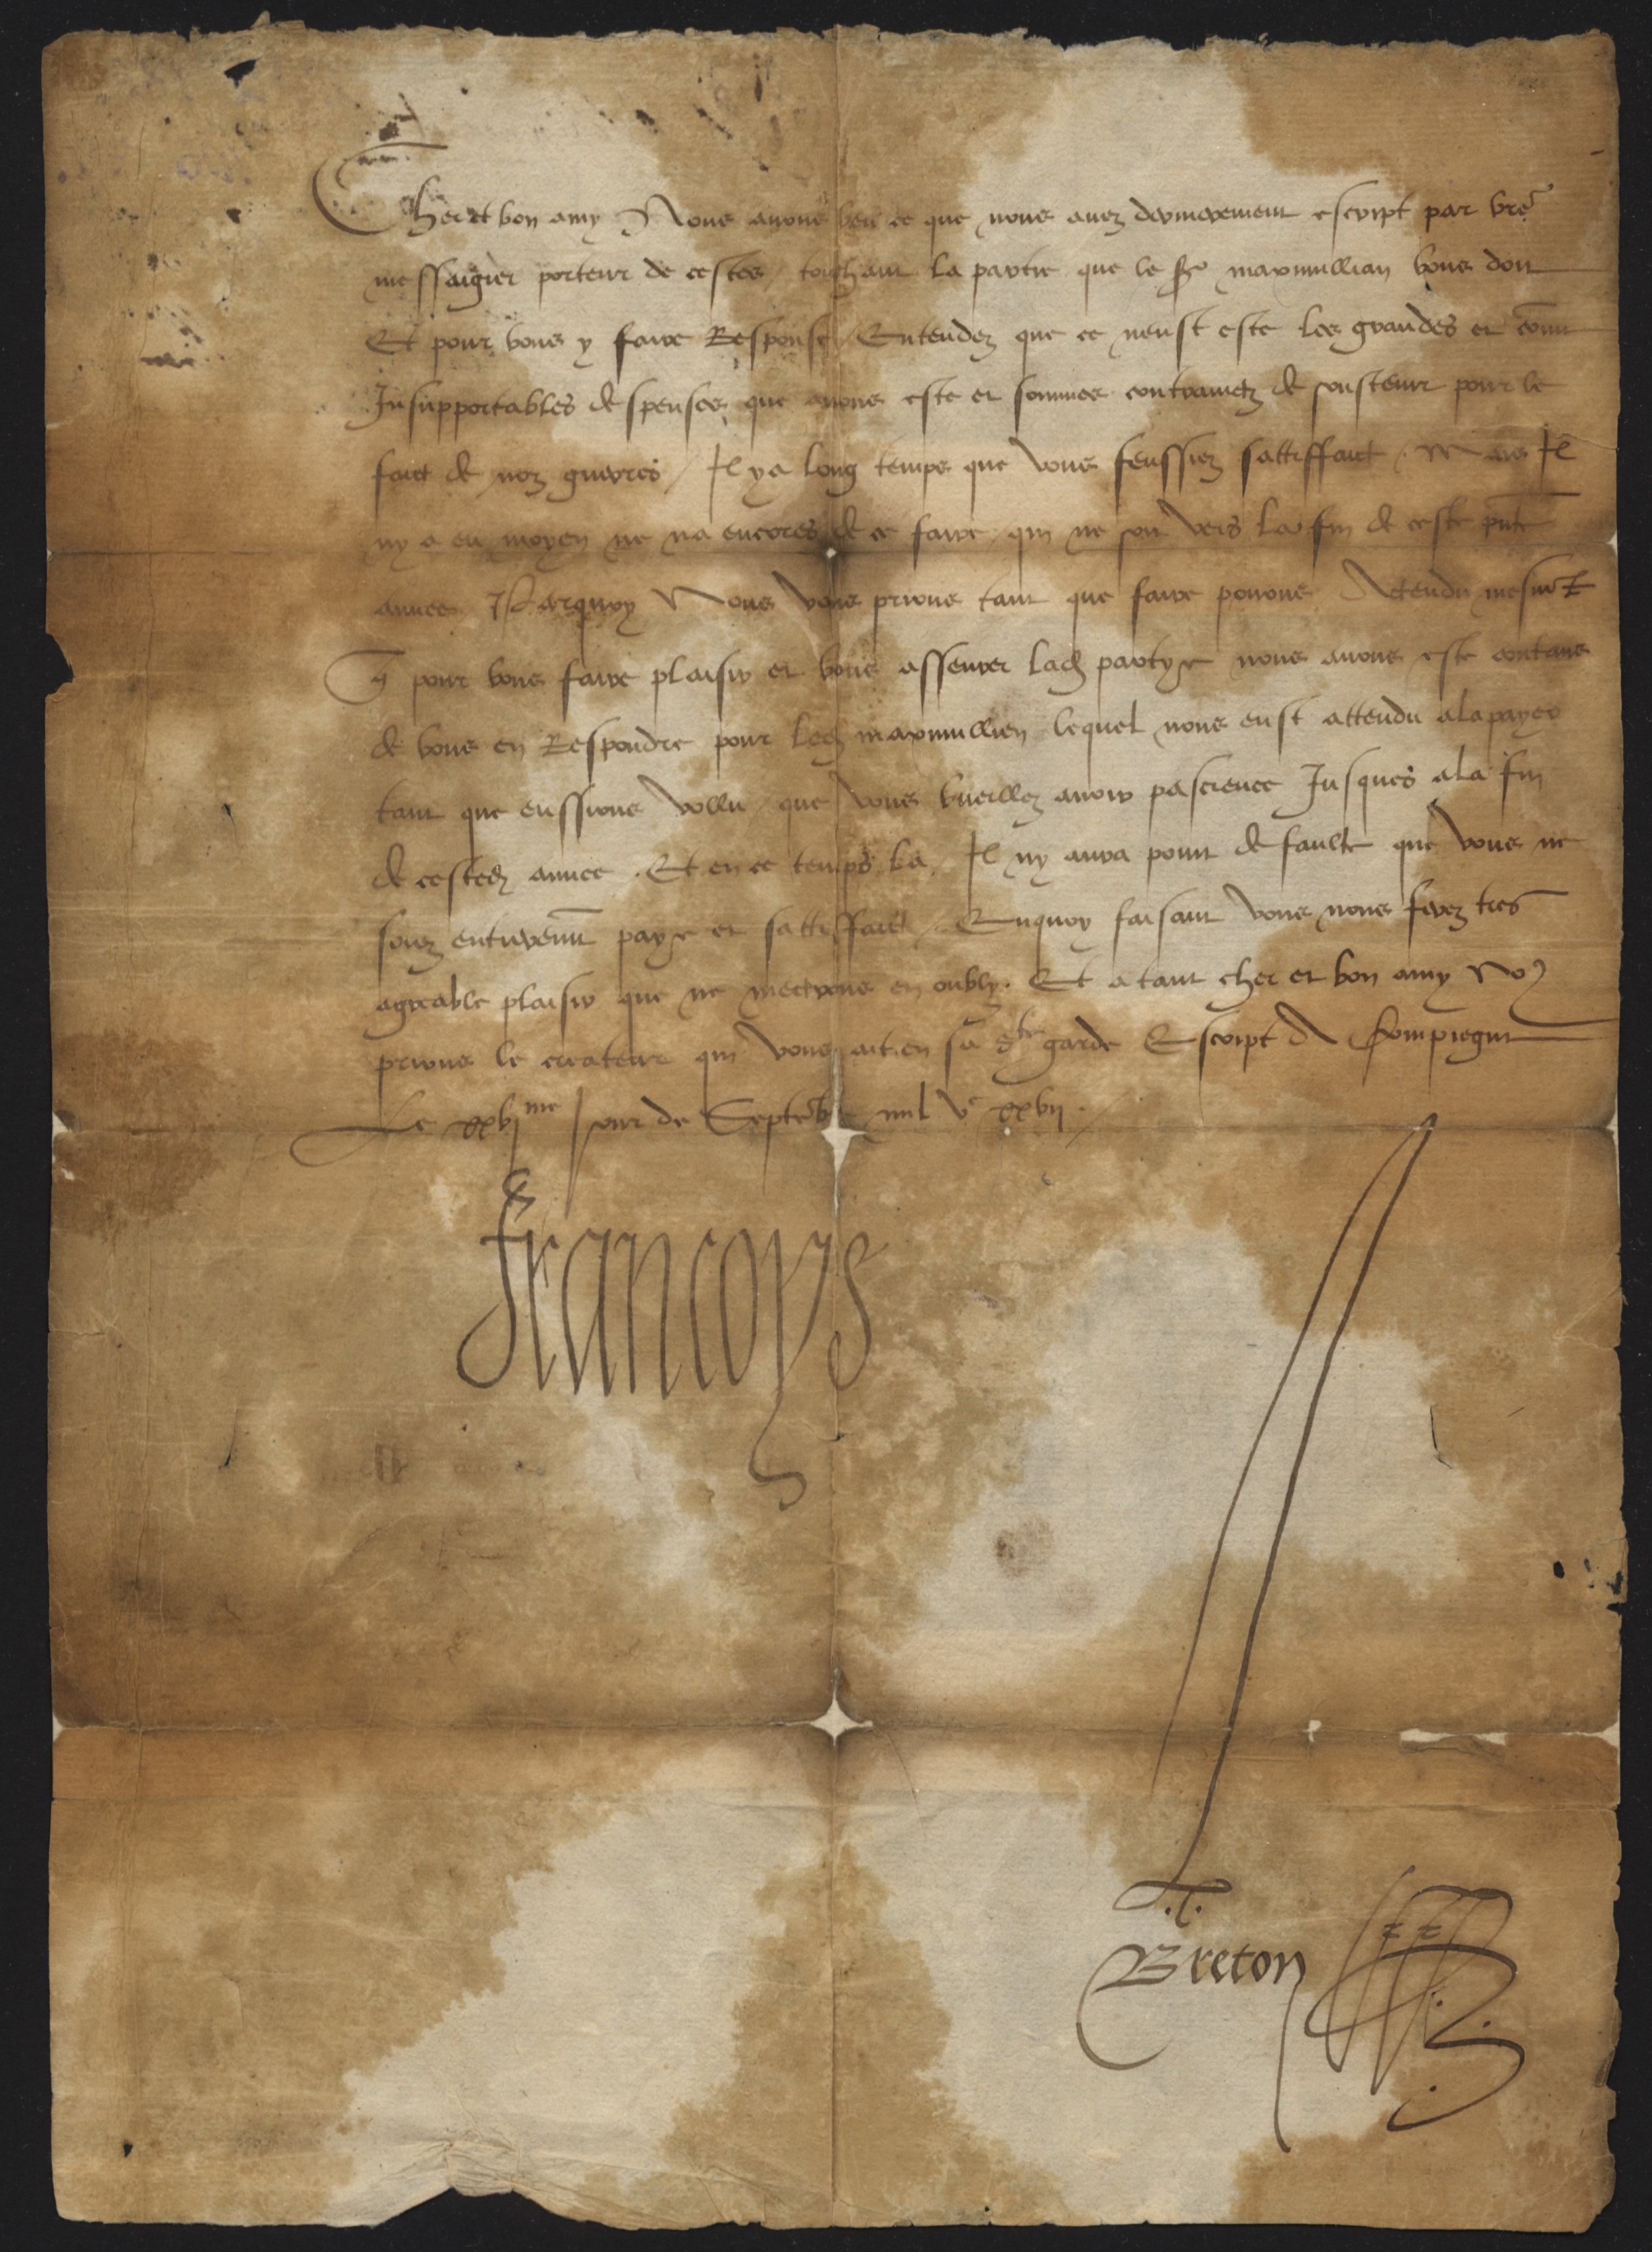 Cher et bon amy Nous avons veu ce que nous avez dernierement escript par vre
messaigier porteur de cestes / touchant la partie que le sr maxmillian vous doit
Et pour vous y faire Response / Entendez que ce neust este les grandes et
Insupportables despenses que avons este et sommes contrainctz de soustenir pour le
faict de noz guerres / Il y a long temps que vous feussiez sattisffaict / Mais Il
ny a eu moyen ne na encores de ce faire qui ne soit vers la fin de ceste pnte
annee Parquoy Nous vous prions tant que faire povons Actendu mesmt
q pour vous faire plaisir et vous asseurer lad partye nous avons este contans
de vous en Respondre pour led maxmillien lequel nous eust attendu a la payer
tant que eussions vollu / que vous vueillez avoir pascience Jusques a la fin
de cested annee . Et en ce temps la / Il ny aura point de faulte que vous ne
soiez entierement paye et sattisffaict / Enquoy faisant vous nous ferez tres
agreable plaisir que ne mectrons en oubly . Et atant cher et bon amy No9
prions le createur qui vous ait en sa ste garde Escript A Compiegne
Le xxvjme Jour de Septebre mil vc xxvij .
Francoys
Breton